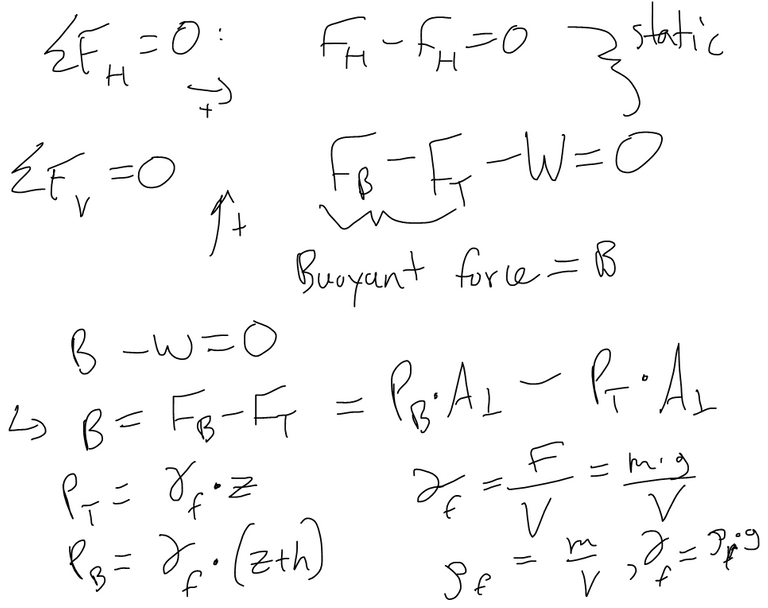 ΣF_H = 0: → + F_H - F_H = 0 } static
ΣF_V = 0 ↑+ F_B - F_T - W = 0
Buoyant force = B
B - W = 0
↳ B = F_B - F_T = P_B · A_⊥ - P_T · A_⊥
P_T = γ_f · z γ_f = F/V = m·g/V
P_B = γ_f · (z+h) ρ_f = m/V, γ_f = ρ_f·g